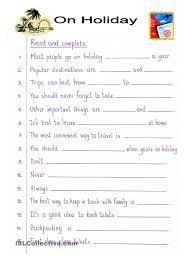 On Holiday
Read and complete.
1. Most people go on holiday ______ a year.
2. Popular destinations are ______ and ______
3. Trips can last from ______ to ______
4. You should never forget to take ______
5. Other important things are ______ and ______
6. It's best to leave ______ at home
7. The most convenient way to travel is ______
8. You should ______ when you're on holiday
9. Don't ______
10. Never ______
11. Always ______
12. The best way to keep in touch with family is ______
13. It's a good idea to book tickets ______
14. Backpacking is ______
iSLCollective.com